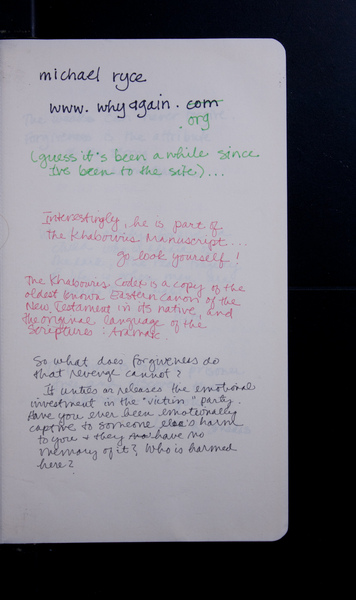 michael ryce
www.whyagain.com
.org
(guess it's been a while since
I've been to the site.)...
Interestingly, he is part of
the Khabouris Manuscript...
go look yourself!
The Khabouris Codex is a copy of the
oldest known Eastern canon of the
New Testament in its native, and
the original language of the
scriptures: Aramaic.
So what does forgiveness do
that revenge cannot?
It unties or releases the emotional
investment in the "victim" party.
Have you ever been emotionally
captive to someone else's harm
to you & they have no
memory of it? Who is harmed
here?